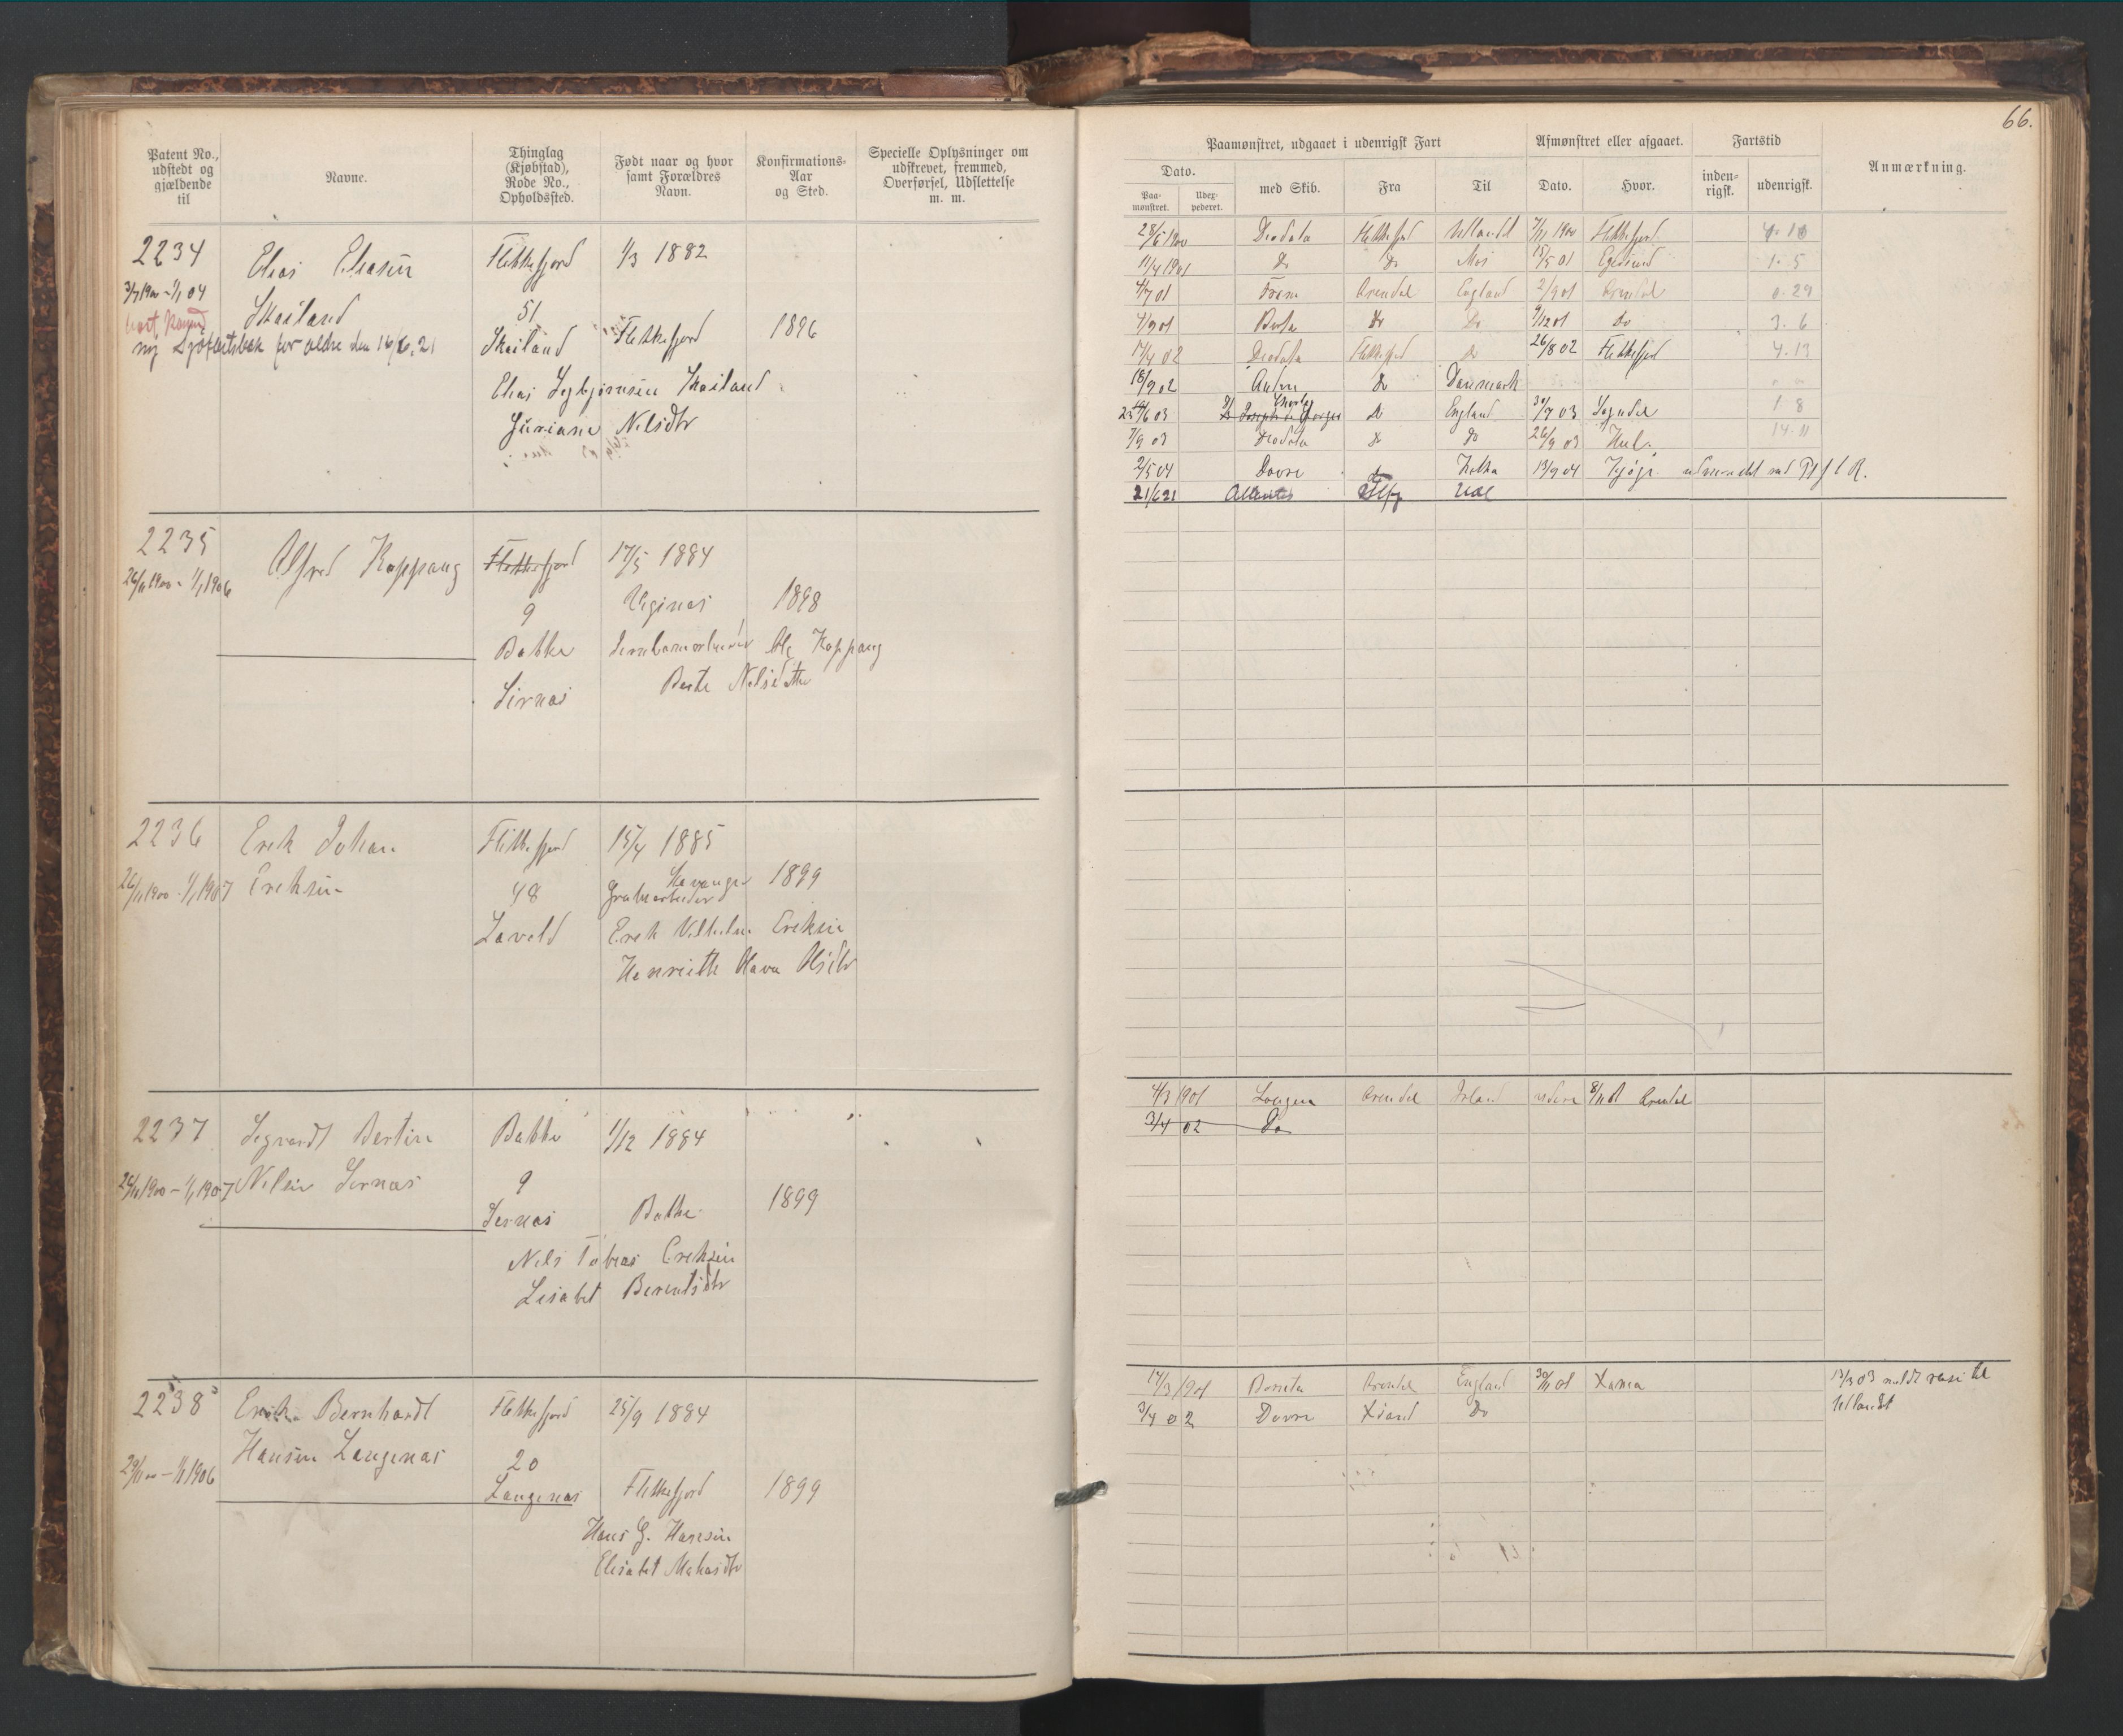 66.
Patent No., udstedt og gjældende til
Navne.
Thinglag (Kjøbstad), Rode No., Opholdssted.
Født naar og hvor samt Forældres Navn.
Konfirmations-Aar og Sted.
Specielle Oplysninger om udskrevet, fremmed, Overførsel, Udslettelse m. m.
Paamønstret, udgaaet i udenrigsk Fart
Afmønstret eller afgaaet.
Fartstid
Anmærkning.
Dato.
med Skib.
Fra
Til
Dato.
Hvor.
inden-rigsk.
udenrigsk.
Paa-mønstret.
Udex-pederet.
2234
Elias Eliasen
Flekkefjord
1/3 1882
3/7 1900 - 1/1 04
Skailand
51
Flekkefjord
1896
ny Sjøfartsbok for ældre den 16/6.21
Skailand
Elias Sigbjørnsen Skailand
Juriane Nelsdtr
28/5 1900 Deodata Flekkefjord Udlandet 7/11 1900 Flekkefjord
11/4 1901 Do Do Mos 15/5 01 Egersund 1. 5
4/7 01 Arendal England 2/9 01 Arendal 0. 29
4/9 01 Do Do 9/12 01 Do 3. 6
17/4 02 Deodata Flekkefjord Do 26/8 02 Flekkefjord 4. 13
18/9 02 Do Danmark
Do England 30/7 03 Sogndal 1 8
7/9 03 Deodata Do Do 26/9 03 Hul. 14. 11
2/5 04 Dovre Do 13/9 04
21/6 21 Udl
2235
Alfred Koppang
Flekkefjord
17/5 1884
26/11 1900 - 1/1 1906
9
1898
Bakke
Jernbanearbeider Ole Koppang
Sirnes
Berte Nelsdatter
2236
Erik Johan
Flekkefjord
15/4 1885
26/11 1900 - 1/1 1907
Eriksen
48
Stavanger
1899
Grubearbeider
Lavold
Erik Vilhelm Eriksen
Henriette Olava Olsdtr
2237
Segvardt Bertin
Bakke
1/12 1884
26/11 1900 - 1/1 1907
Nelsen Sirnes
9
Sirnes
Bakke
1899
Nels Tobias Eriksen
Lisabet Berentsdtr
4/3 1901 Arendal Irland 8/11 01 Arendal
3/4 02 Do
2238
Erik Bernhardt
Flekkefjord
25/9 1884
29/11 00 - 1/1 1906
Hansen Langenes
20
Langenes
Flekkefjord
1899
Hans G. Hansen
Elisabet
14/3 1901 Arendal England 30/11 01
13/3 03 meldt reise til
3/4 02 Dovre Xsand Do
Udlandet